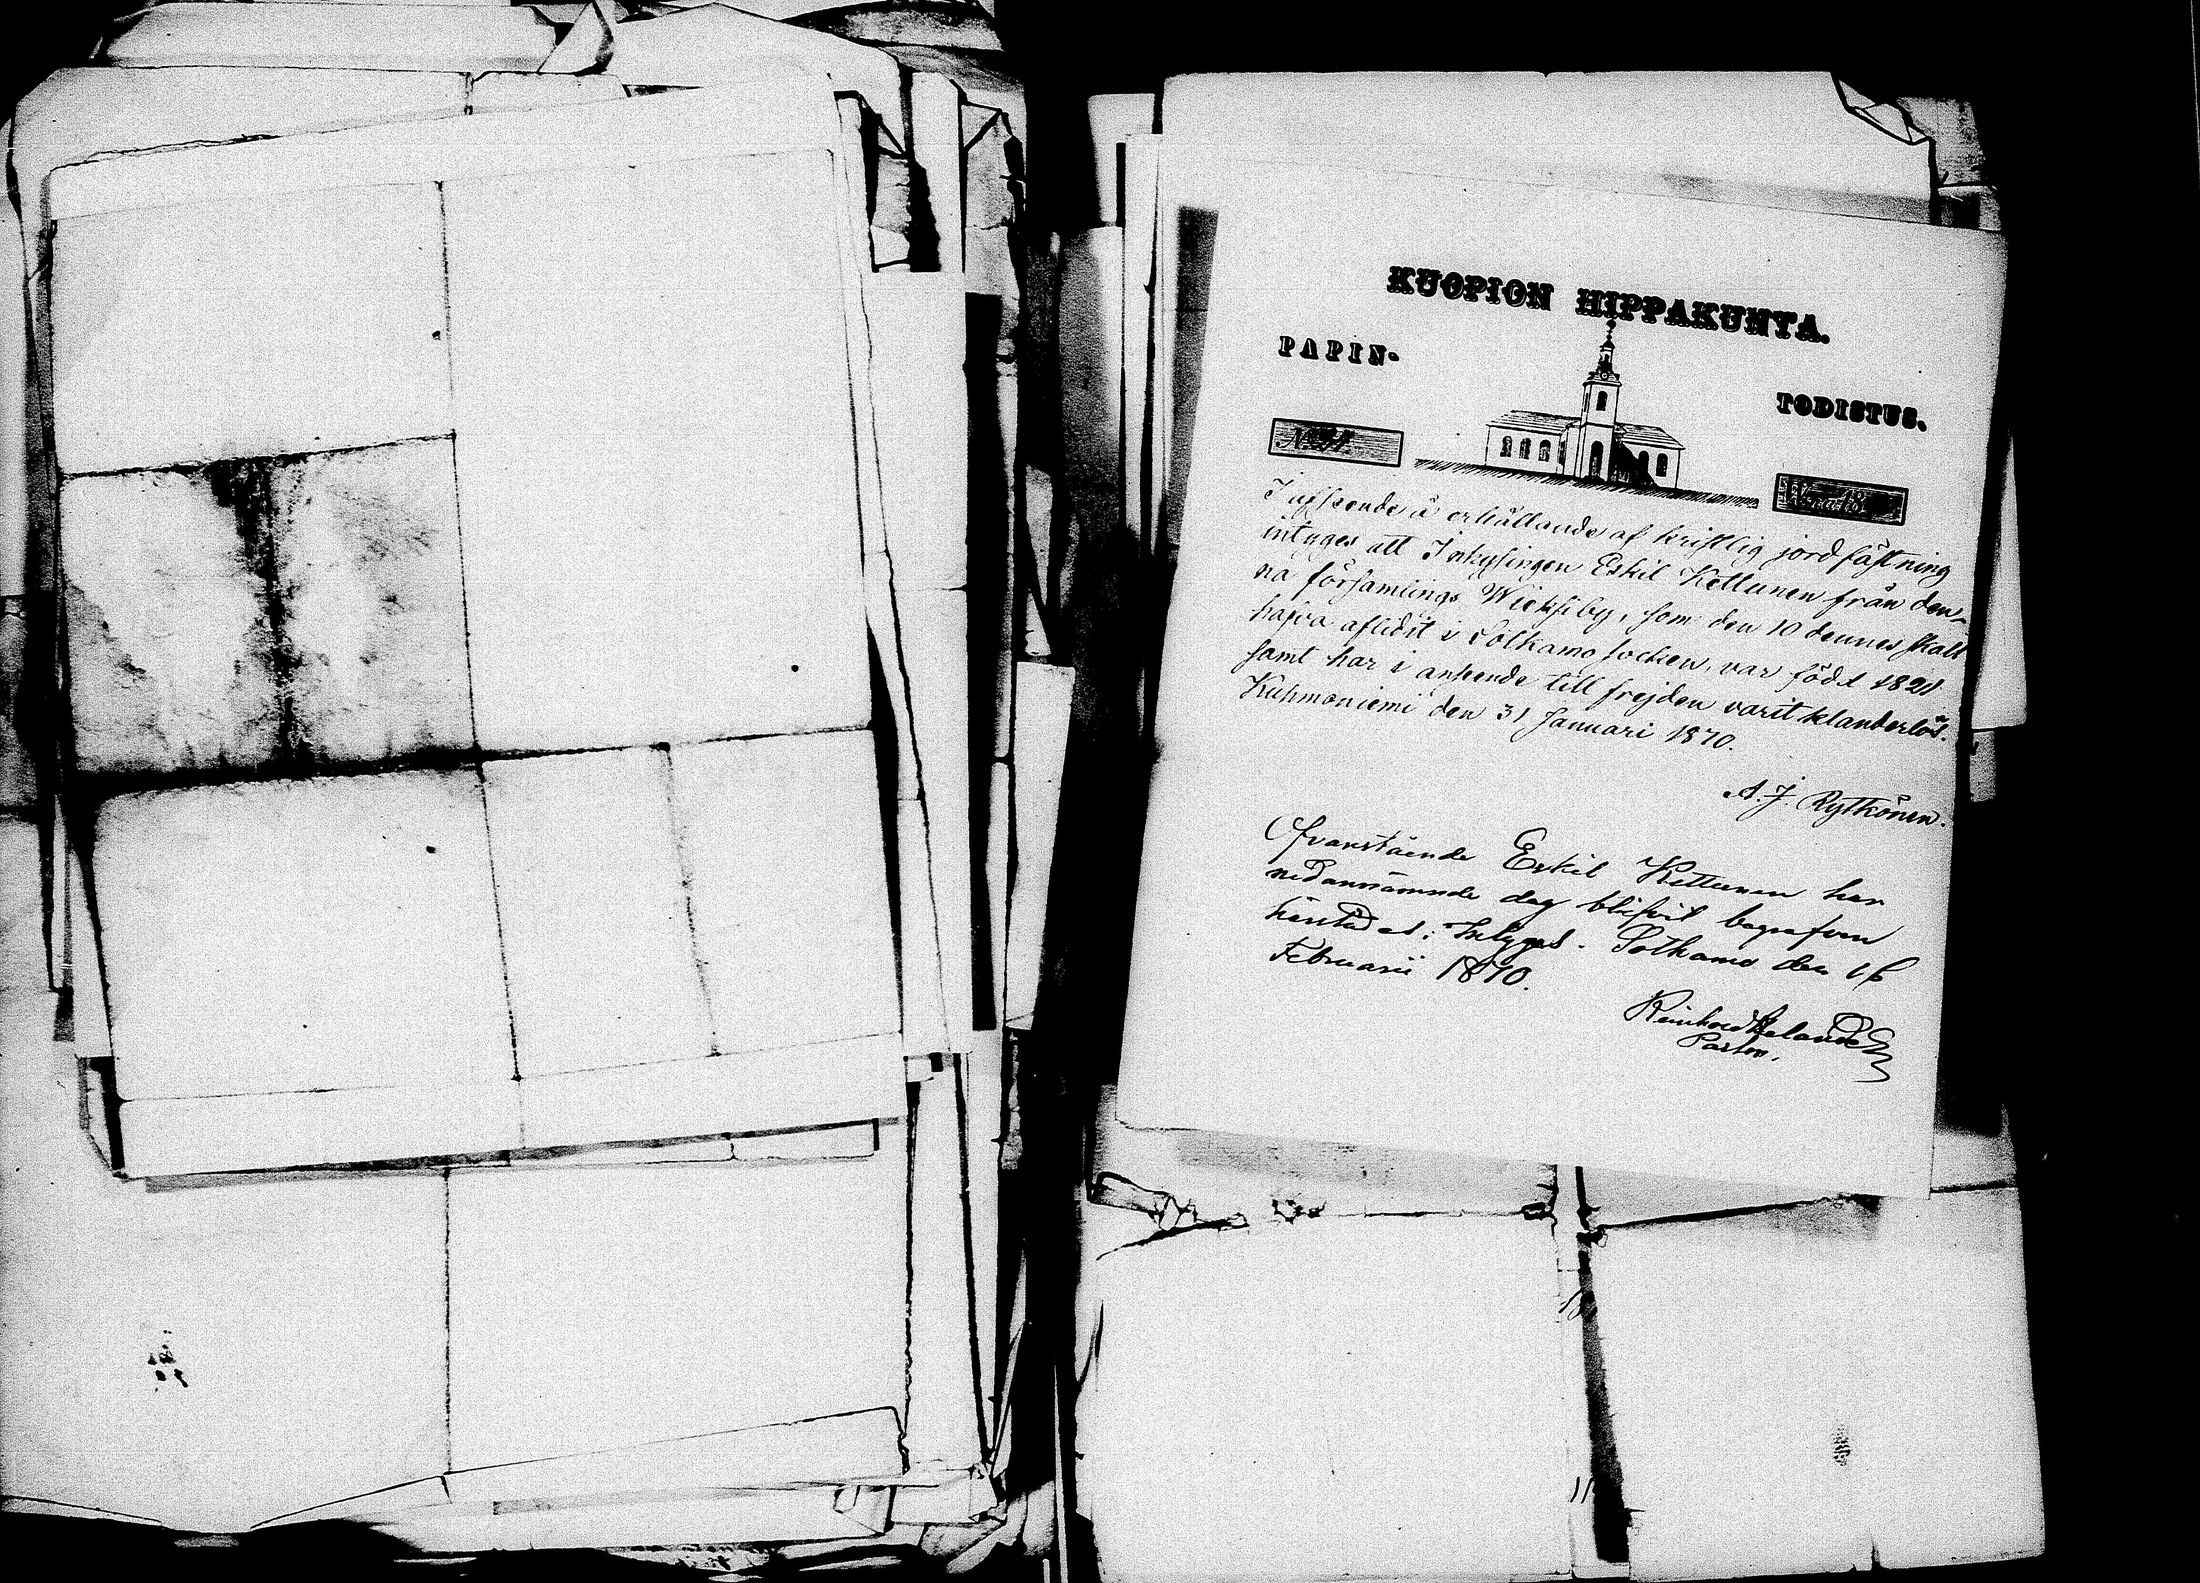 KUOPION HIPPAKUNTA.
PAPIN-
TODISTUS.
No 31.
Wuonna 18
I afseende å erhållande af kristlig jordfästning
intyges att Inhysingen Eskil Kettunen från den-
na församlings Wieksi by, som den 10 dennes skall
hafva aflidit i Sotkamo socken, var född 1821
samt har i anseende till frejden varit klanderlös.
Kuhmoniemi den 31 Januari 1870.
A. J. Rytkönen.
Ofvanstående Eskil Kettunen har
nedannämnde dag blifvit begrafven
härstädes; Intygas. Sotkamo den 16
Februarii 1870.
Reinhold Helander
Pastor.